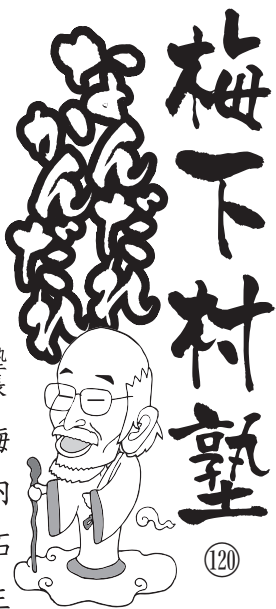 梅下村塾
⑫⓪
なんだれ
かんだれ
塾長 梅内拓生